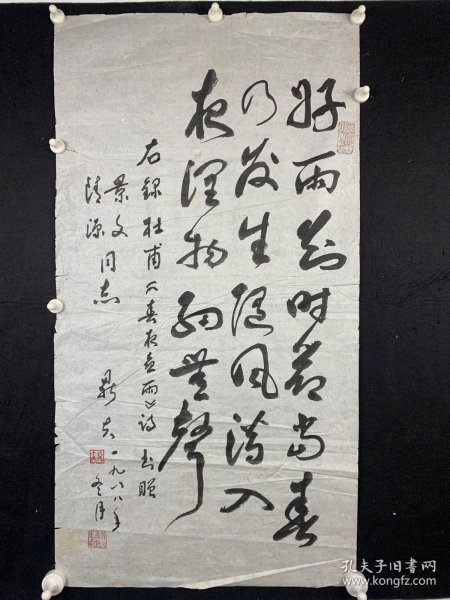 好雨知时节当春
乃发生随风潜入
夜润物细无声
右録杜甫《春夜喜雨》诗 书赠
景文
清源 同志
一九八八年
冬月
孔夫子旧书网
www.kongfz.com